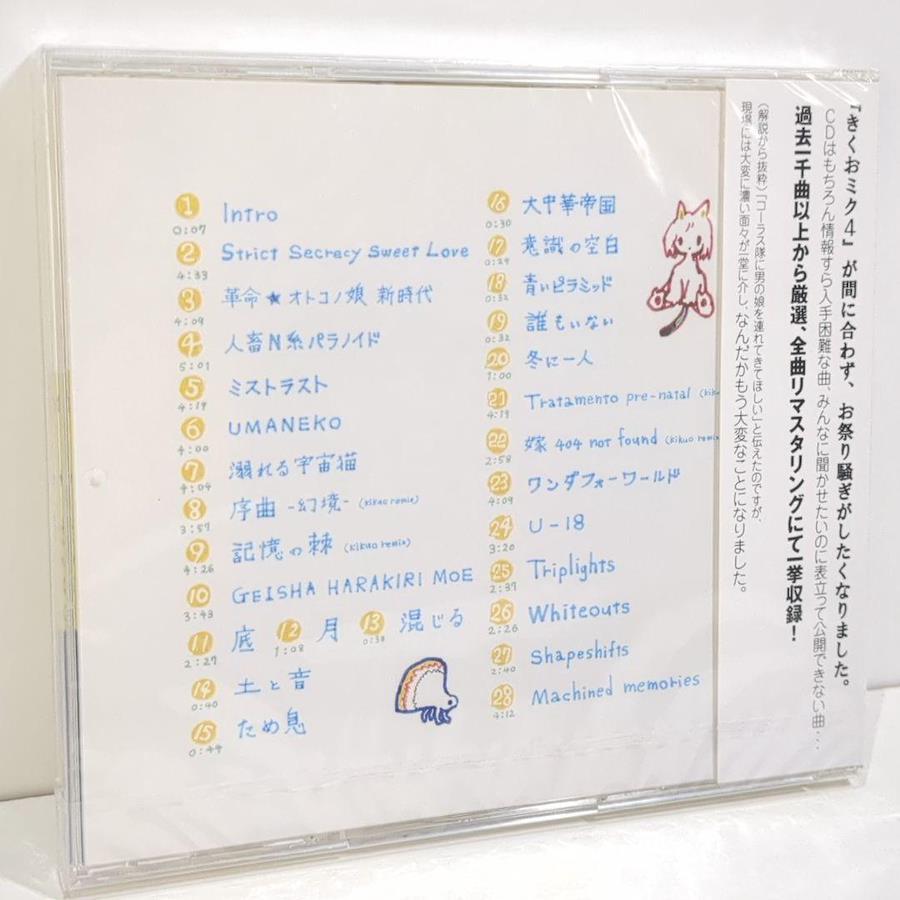 1 Intro
0:07
2 Strict Secrecy Sweet Love
4:33
3 革命★オトコノ娘 新時代
4:09
4 人畜N系パラノイド
5:01
5 ミストラスト
4:19
6 UMANEKO
4:00
7 溺れる宇宙猫
4:04
8 序曲 -幻境- (kikuo remix)
3:57
9 記憶の棘 (kikuo remix)
4:26
10 GEISHA HARAKIRI MOE
3:43
11 底 12 月 13 混じる
2:27 1:08 0:38
14 土と音
0:40
15 ため息
0:44
16 大中華帝国
0:30
17 意識の空白
0:29
18 青いピラミッド
0:32
19 誰もいない
0:32
20 冬に一人
1:00
21 Tratamento pre-natal (kik
4:19
22 嫁 404 not found (kikuo remix
2:58
23 ワンダフォーワールド
4:09
24 U-18
3:20
25 Triplights
2:37
26 Whiteouts
2:26
27 Shapeshifts
2:40
28 Machined memories
4:12
『きくおミク4』が間に合わず、お祭り騒ぎがしたくなりました。
CDはもちろん情報すら入手困難な曲、みんなに聞かせたいのに表立って公開できない曲・・・
過去一千曲以上から厳選、全曲リマスタリングにて一挙収録！
(解説から抜粋)「コーラス隊に男の娘を連れてきてほしい」と伝えたのですが、
現場には大変に濃い面々が一堂に介し、なんだかもう大変なことになりました。